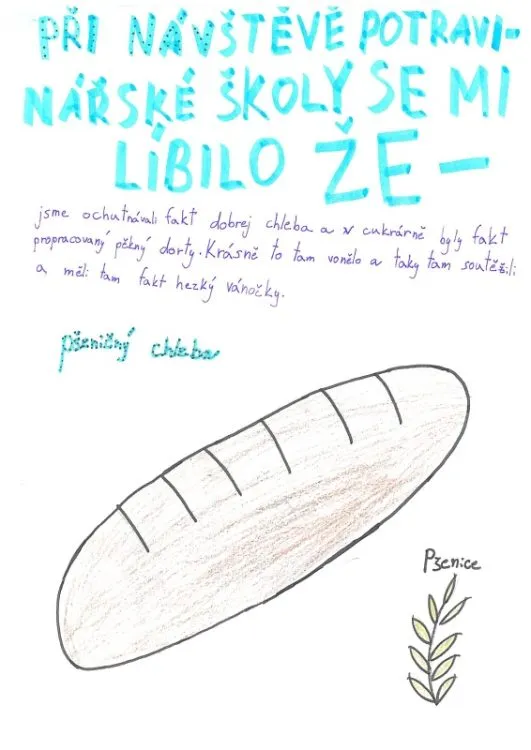 PŘI NÁVŠTĚVĚ POTRAVI-
NÁŘSKÉ ŠKOLY SE MI
LÍBILO ŽE-
jsme ochutnávali fakt dobrej chleba a v cukrárně byly fakt
propracovaný pěkný dorty. Krásně to tam vonělo a taky tam soutěžili
a měli tam fakt hezký vánočky.
pšeničný chleba
Pšenice